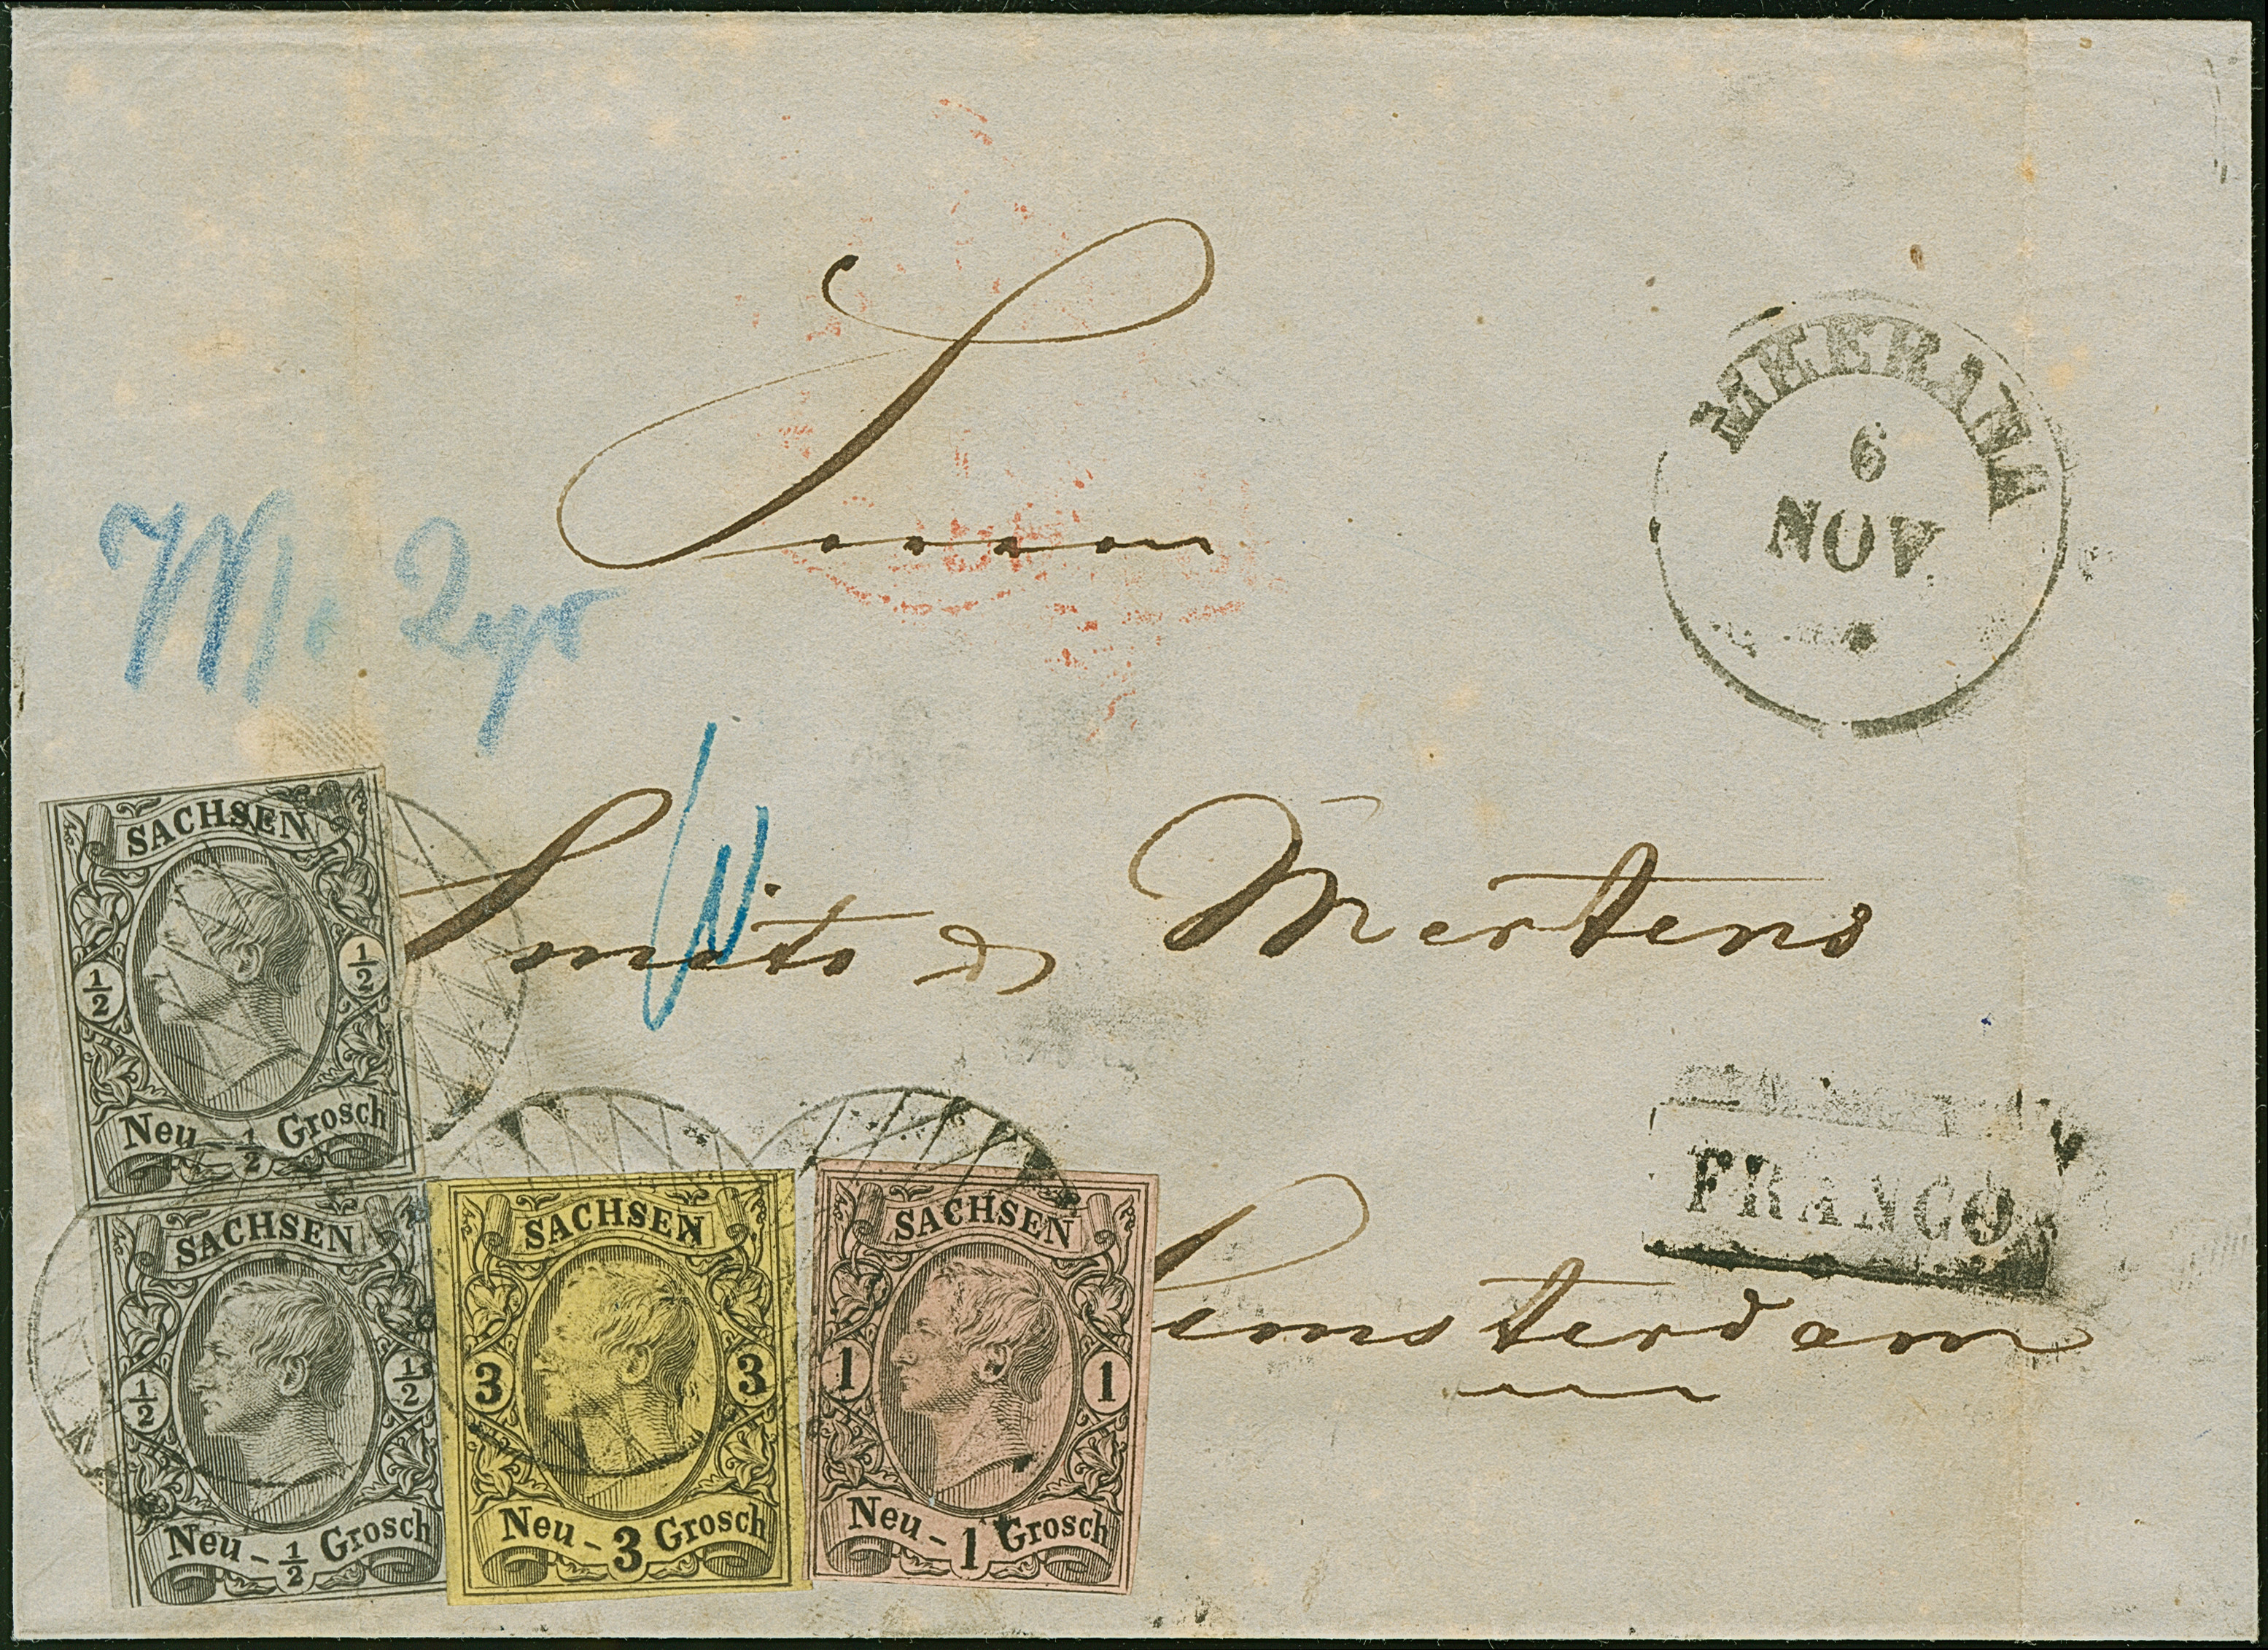 MEERANA
6
NOV
Smits & Mertens
FRANCO
Amsterdam
SACHSEN
½ ½
Neu - ½ Grosch
SACHSEN
½ ½
Neu - ½ Grosch
SACHSEN
3 3
Neu - 3 Grosch
SACHSEN
1 1
Neu - 1 Grosch